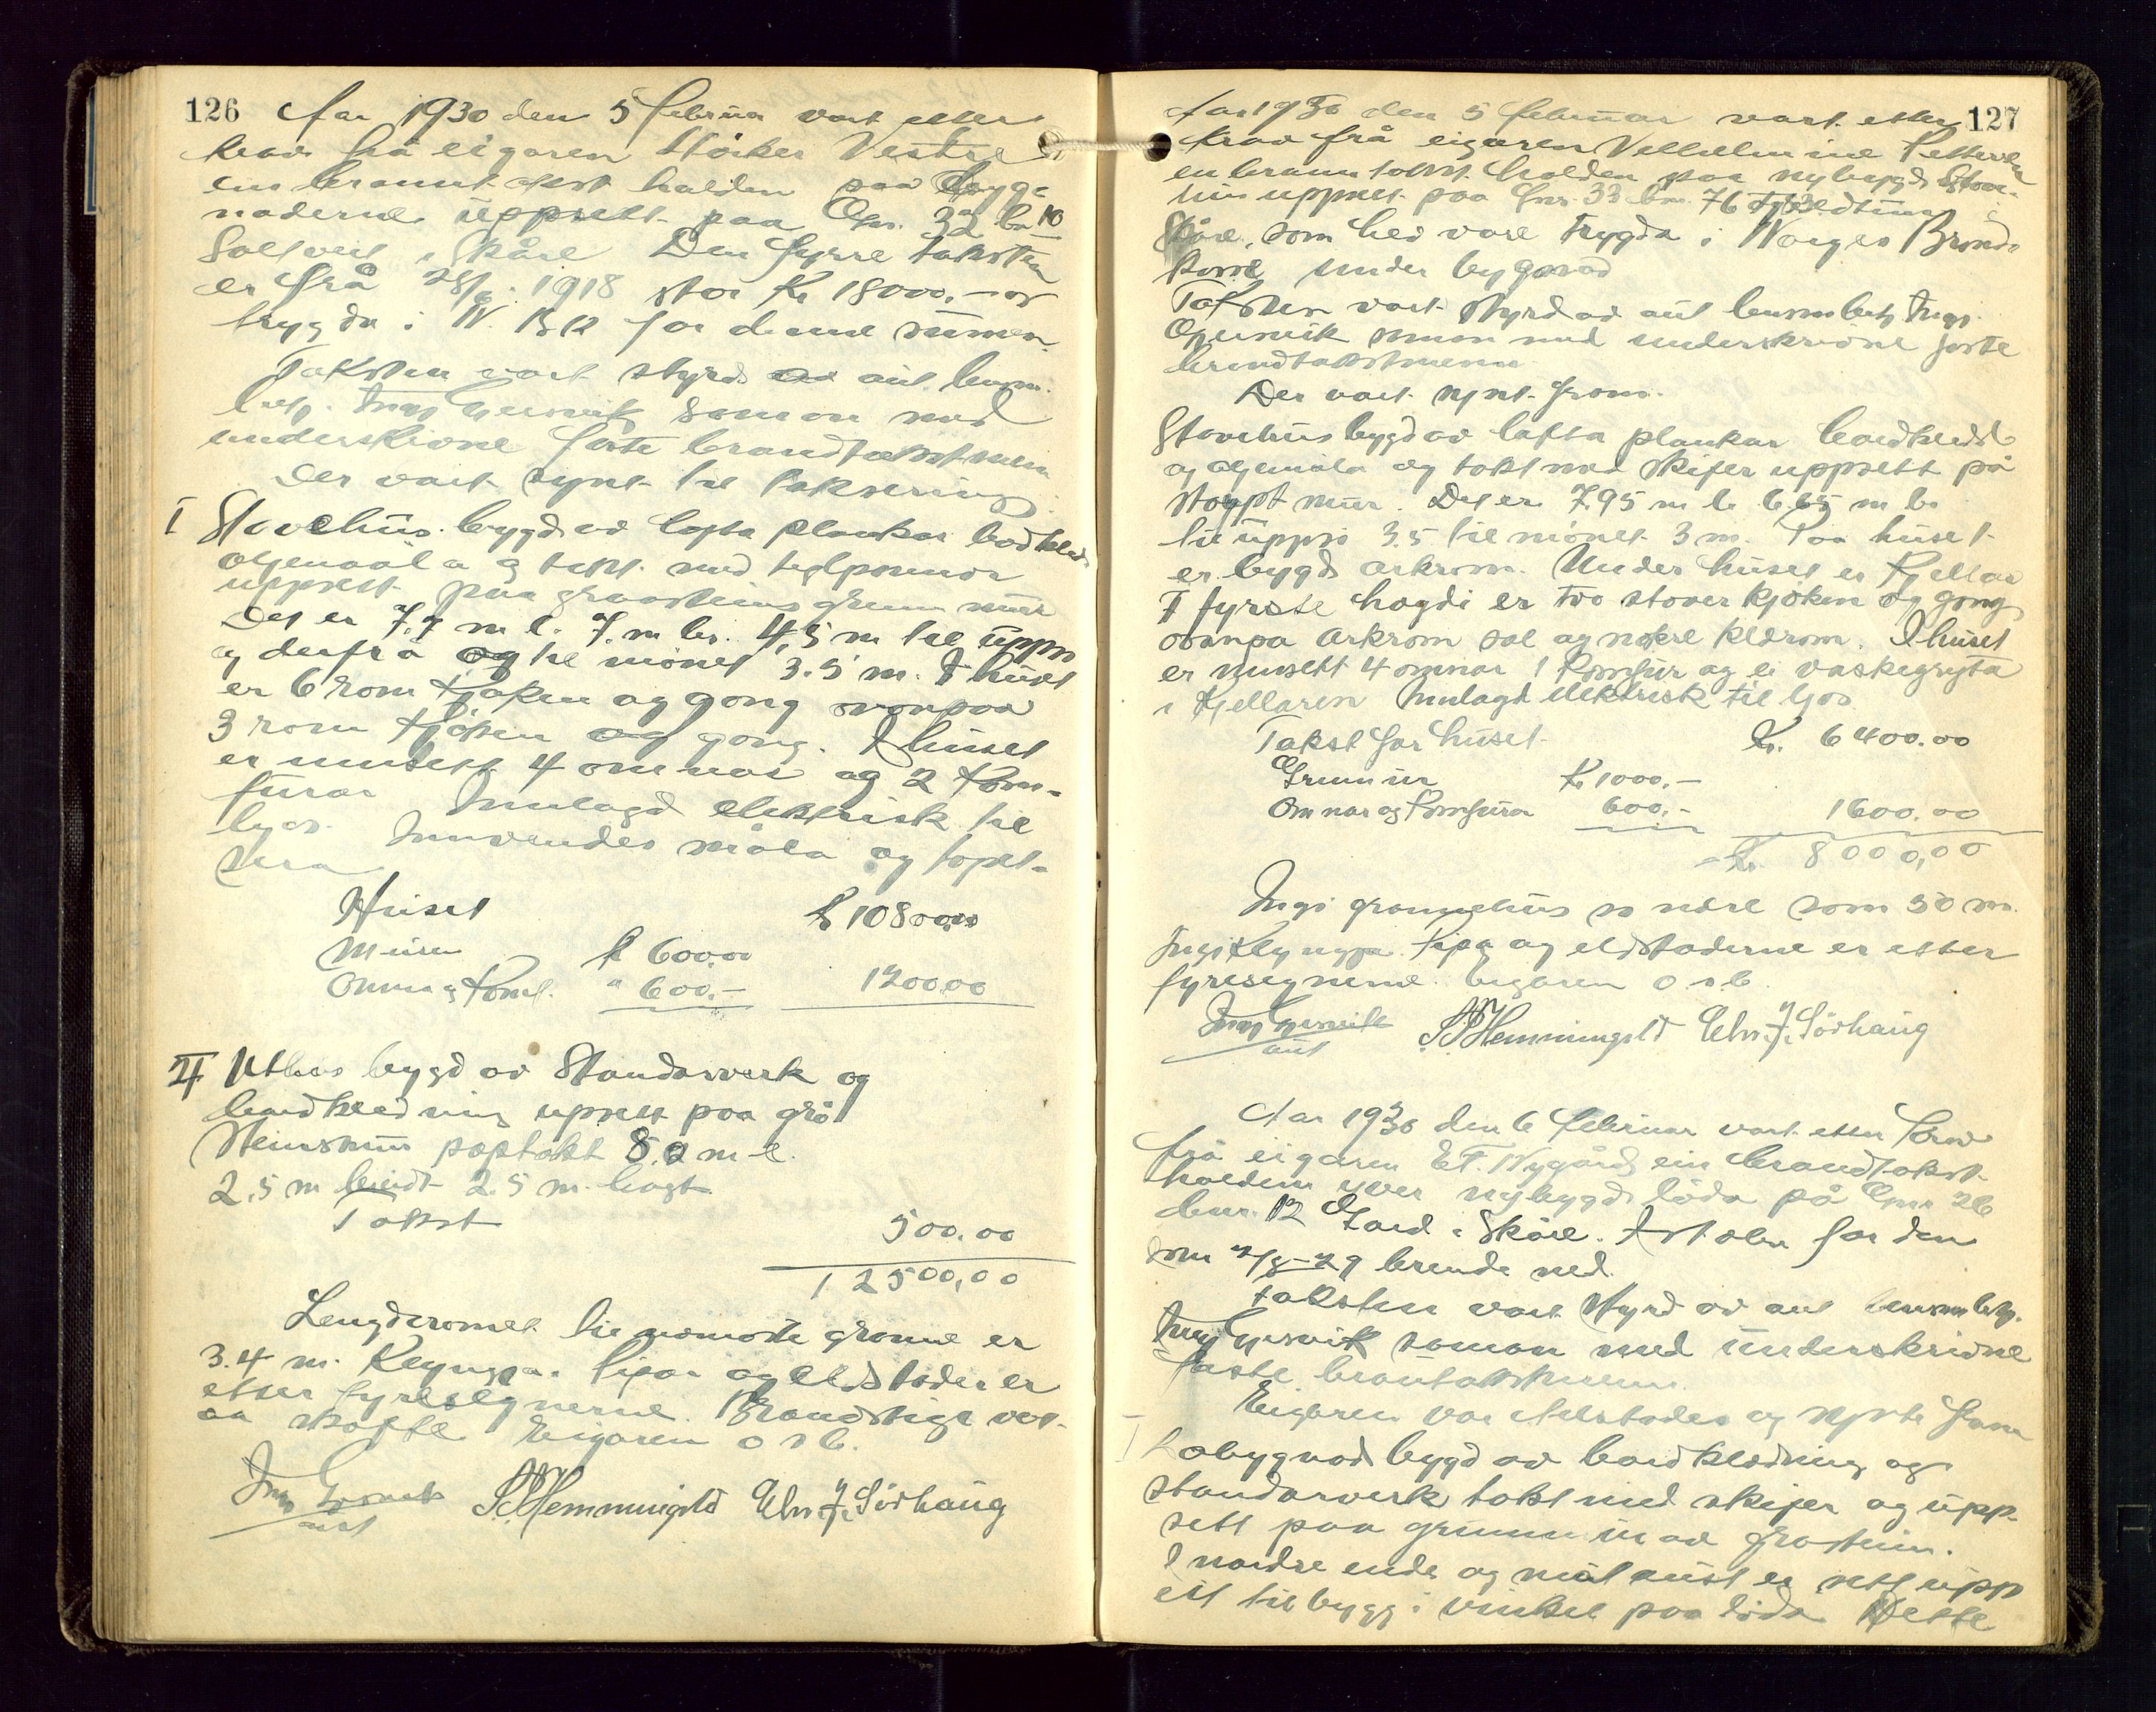 126
Aar 1930 den 5 februar vart etter
krav frå eigaren Vestre
ein branntakst halden paa bygg-
naderne uppsett paa Gnr. 32 bn 10
Saltveit i Skåre Den fyrre taksten
er frå 28/6. 1918 stor Kr 18000.- og
trygda i N. B.K for denne summen.
Taksten vart styrd av aut. lensm.
betj. saman med
underskrivne faste brandtakstmenn
Der vart synt til taksering
I Stovehus bygd av lafta plankar bordkledd
oljemåla og tekt med teglpannor
uppsett paa graasteins grunnmur
Det er 7.7 m l. 7. m br. 4,5 m til upps
og derfrå og til mønet 3.5 m. I huset
er 6 rom kjøken og gong ovanpaa
3 rom kjøken og gong. I huset
er innsett 4 omnar og 2 kom-
furar Innlagd elektrisk til
ljos. Innvendes måla og tapet-
sera
Huset kr 10800,00
Muren kr 600.00
Omnar og Komf. " 600.- 1200.00
II Uthus bygd av Standarverk og
bordkledning uppsett paa grå
steinsmur paptekt 8.0 m l.
2,5 m breidt 2.5 m. høgt.
Takst 500.00
12500,00
Lengderomet til næmaste granne er
3.4 m. Klyngja. Pipar og eldstader er
etter fyresegnerne. Brandstige ver-
aa skaffe Eigaren o s b.
aut S.P. Hemmingstd Eln. J. Sørhaug
127
Aar 1930 den 5 februar vart etter
krav frå eigaren Vilhelmine Pettersen
en branntakst halden paa nybygd Stove-
hus uppsett paa Gnr. 33 bnr. 76
Skåre, som hev vore trygda i Norges Brand-
kasse under bygnad
Taksten vart styrd av aut lensm betj
saman med underskrivne faste
brandtakstmenn
Der vart synt fram.
Stovehus bygd av lafta plankar bordkledd
og oljemåla og tekt med skifer uppsett på
støypt mur. Det er 7.95 m l. 6.65 m b.
til uppsi 3.5 til mønet 3 m. Paa huset
er bygd arkrom. Under huset er kjellar
I fyrste høgdi er tvo stover kjøken og gong
ovanpa arkrom sal og nokre kledrom. I huset
er innsett 4 omnar 1 komfur og ei vaskegryta
i kjellaren Innlagd elektrisk til ljos
Takst for huset Kr. 6400.00
Grunnmur Kr 1000.-
Omnar og komfura 600.- 1600.00
Kr. 8000,00
Ingi grannehus so nære som 50 m.
Ingi Klyngja. Pipa og eldstaderne er etter
fyresegnerne. Eigaren o.s.b.
aut S.P. Hemmingstd Eln. J. Sørhaug
Aar 1930 den 6 februar vart etter krav
frå eigaren E.T. Nygård ein brandtakst
halden yver nybygd løda på Gnr 26
bnr. 12 Gard i Skåre. Astaden for den
som 7/8-29 brende ned.
Taksten vart styrd av aut lensm betj.
saman med underskrivne
faste branntakstmenn.
Eigaren var tilstades og synte fram
I Løbygnad bygd av bordkledning og
standarverk tekt med skifer og upp-
sett paa grunnmur av gråstein.
I nordre ende og mot aust er sett upp
eit tilbygg i vinkel paa løda Dette